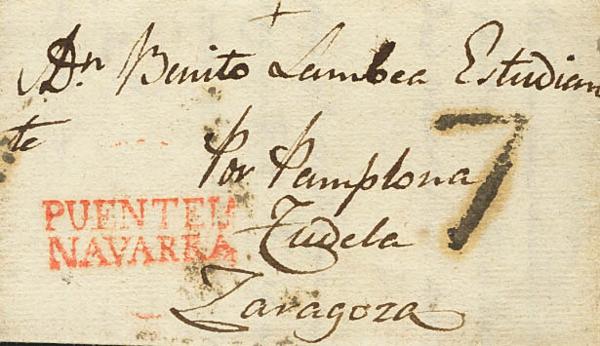 A Dn Benito Lambea Estudian
te
Por Pamplona
7
Tudela
Zaragoza
PUENTELA
NAVARRA